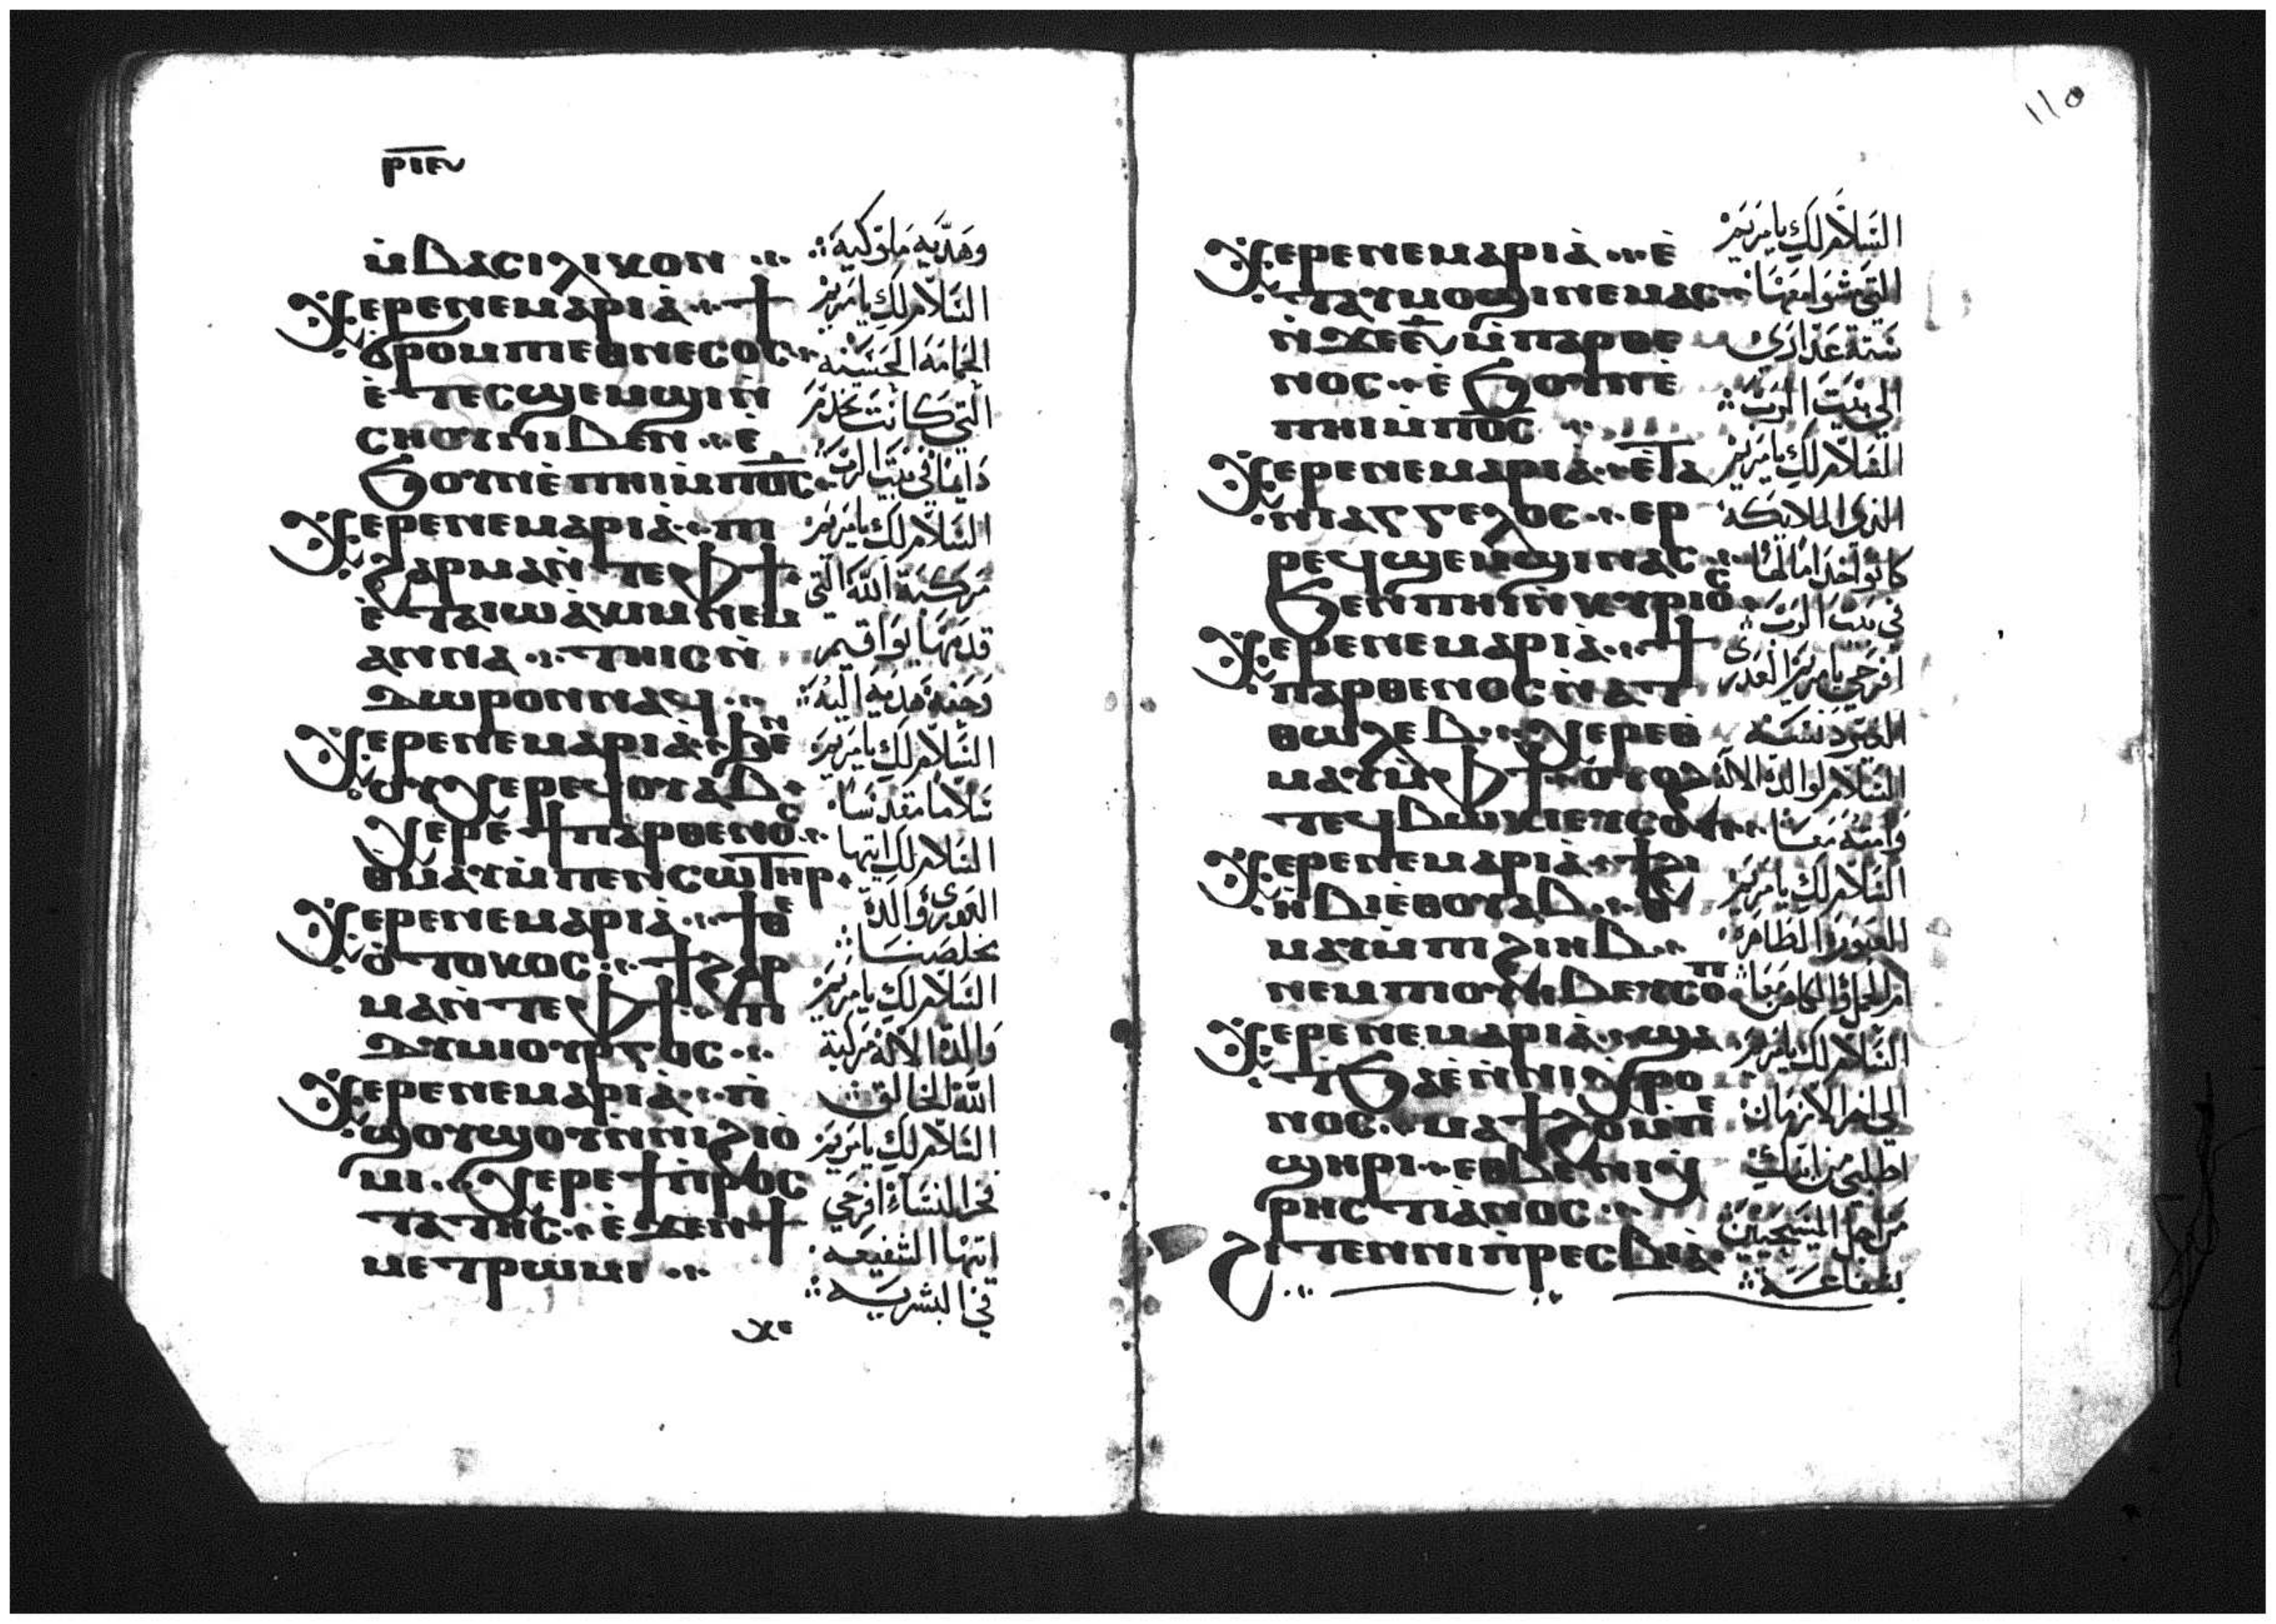 ⲣⲓⲉ
ⲙ̀ⲃⲁⲥⲓⲗⲓⲕⲟⲛ
Ⲭⲉⲣⲉⲛⲉⲙⲁⲣⲓⲁ̀ ϯ
ϭⲣⲟⲙⲡⲓⲉⲑⲛⲉⲥⲟⲥ
ⲉ̀ⲧⲉⲥϣⲉⲙϣⲓⲛ̀
ⲥⲏⲟⲩⲛⲓⲃⲉⲛ ⲉ̀
ϧⲟⲩⲛⲉ̀ⲡⲏⲓⲙ̀ⲡⲟ̅ⲥ̅
Ⲭⲉⲣⲉⲛⲉⲙⲁⲣⲓⲁ̀ ⲡⲓ
ϩⲁⲣⲙⲁⲛ̀ⲧⲉⲫϯ
ⲉ̀ⲧⲁⲓⲱⲁ̀ⲕⲓⲙⲛⲉⲙ
ⲁⲛⲛⲁ ⲧⲏⲓⲥⲛ̀
ⲇⲱⲣⲟⲛⲛⲁϥ
Ⲭⲉⲣⲉⲛⲉⲙⲁⲣⲓⲁ̀ ϧⲉⲛ
ⲟⲩⲭⲉⲣⲉϥⲟⲩⲁⲃ
ⲭⲉⲣⲉϯⲡⲁⲣⲑⲉⲛⲟⲥ
ⲑⲙⲁⲩⲙ̀ⲡⲉⲛⲥⲱⲧⲏⲣ
Ⲭⲉⲣⲉⲛⲉⲙⲁⲣⲓⲁ̀ ϯⲑⲉ
ⲟ̀ⲧⲟⲕⲟⲥ ϯϩⲁⲣ
ⲙⲁⲛ̀ⲧⲉⲫϯ ⲡⲓ
ⲇⲩⲙⲓⲟⲩⲣⲅⲟⲥ
Ⲭⲉⲣⲉⲛⲉⲙⲁⲣⲓⲁ̀ ⲡ̀
ϣⲟⲩϣⲟⲩⲛ̀ⲛⲓϩⲓⲟ
ⲙⲓ ⲭⲉⲣⲉϯⲡ̀ⲣⲟⲥ
ⲧⲁⲧⲏⲥ ⲉ̀ϫⲉⲛϯ
ⲙⲉⲧⲣⲱⲙⲓ
ⲭⲉ
وهديه ملوكيه
السلام لك يا مريم
الحمامة الحسنة
التي كانت تخدم
دايما في بيت الرب
السلام لك يا مريم
مركبة الله التي
قدمها يواقيم
وحنه هديه اليه
السلام لك يا مريم
سلاما مقدسا
السلام لك ايتها
العدرى والدة
مخلصنا
السلام لك يا مريم
والدة الاله مركبة
الله الخالق
السلام لك يا مريم
فخر النساء افرحي
ايتها الشفيعه
في البشريه
١١٥
Ⲭⲉⲣⲉⲛⲉⲙⲁⲣⲓⲁ̀ ⲉ̀
ⲧⲁⲩⲙⲟϣⲓⲛⲉⲙⲁⲥ
ⲛ̀ϫⲉⲋ̅ⲙ̀ⲡⲁⲣⲑⲉ
ⲛⲟⲥ ⲉ̀ϧⲟⲩⲛⲉ̀
ⲡⲏⲓⲙ̀ⲡⲟ̅ⲥ̅
Ⲭⲉⲣⲉⲛⲉⲙⲁⲣⲓⲁ̀ ⲉ̀ⲧⲁ
ⲛⲓⲁⲅⲅⲉⲗⲟⲥ ⲉⲣ
ⲣⲉϥϣⲉⲙϣⲓⲛⲁⲥ
ϧⲉⲛⲡⲏⲓⲛ̀ⲕⲩⲣⲓⲟⲥ
Ⲭⲉⲣⲉⲛⲉⲙⲁⲣⲓⲁ̀ ϯ
ⲡⲁⲣⲑⲉⲛⲟⲥⲛ̀ⲁⲧ
ⲑⲱⲗⲉⲃ ⲭⲉⲣⲉⲑ
ⲙⲁⲩⲙ̀ⲫϯ ⲟⲩⲟϩ
ⲧⲉϥⲃⲱⲕⲓⲉⲩⲥⲟⲡ
Ⲭⲉⲣⲉⲛⲉⲙⲁⲣⲓⲁ̀ ϯϩⲓ
ⲏⲃⲓⲉⲑⲟⲩⲁⲃ ⲑ
ⲙⲁⲩⲙ̀ⲡⲓϩⲓⲏⲃ
ⲛⲉⲙⲡⲓⲟⲩⲏⲃⲉⲩⲥⲟⲡ
Ⲭⲉⲣⲉⲛⲉⲙⲁⲣⲓⲁ̀ ϣⲁ
ⲧϧⲁⲉ̀ⲛ̀ⲛⲓⲭⲣⲟ
ⲛⲟⲥ ⲙⲁϯϩⲟⲙ̀ⲡⲉ
ϣⲏⲣⲓ ⲉⲑⲃⲉⲛⲓⲭ
ⲣⲏⲥⲧⲓⲁ̀ⲛⲟⲥ
ϩⲓⲧⲉⲛⲛⲓⲡ̀ⲣⲉⲥⲃⲓⲁ̀
السلام لك يا مريم
التي مشوا معها
ستة عذارى
الى بيت الرب
السلام لك يا مريم
الذي الملايكة
كانوا خداما لها
في بيت الرب
افرحي يا مريم العدرى
الغير دنسة
السلام لوالدة الاله
وامته معا
السلام لك يا مريم
الطاهره
ام الحمل والكاهن معا
السلام لك يا مريم
الى اخر الازمان
اطلبي من ابنك
من اجل المسيحيين
بشفاعة